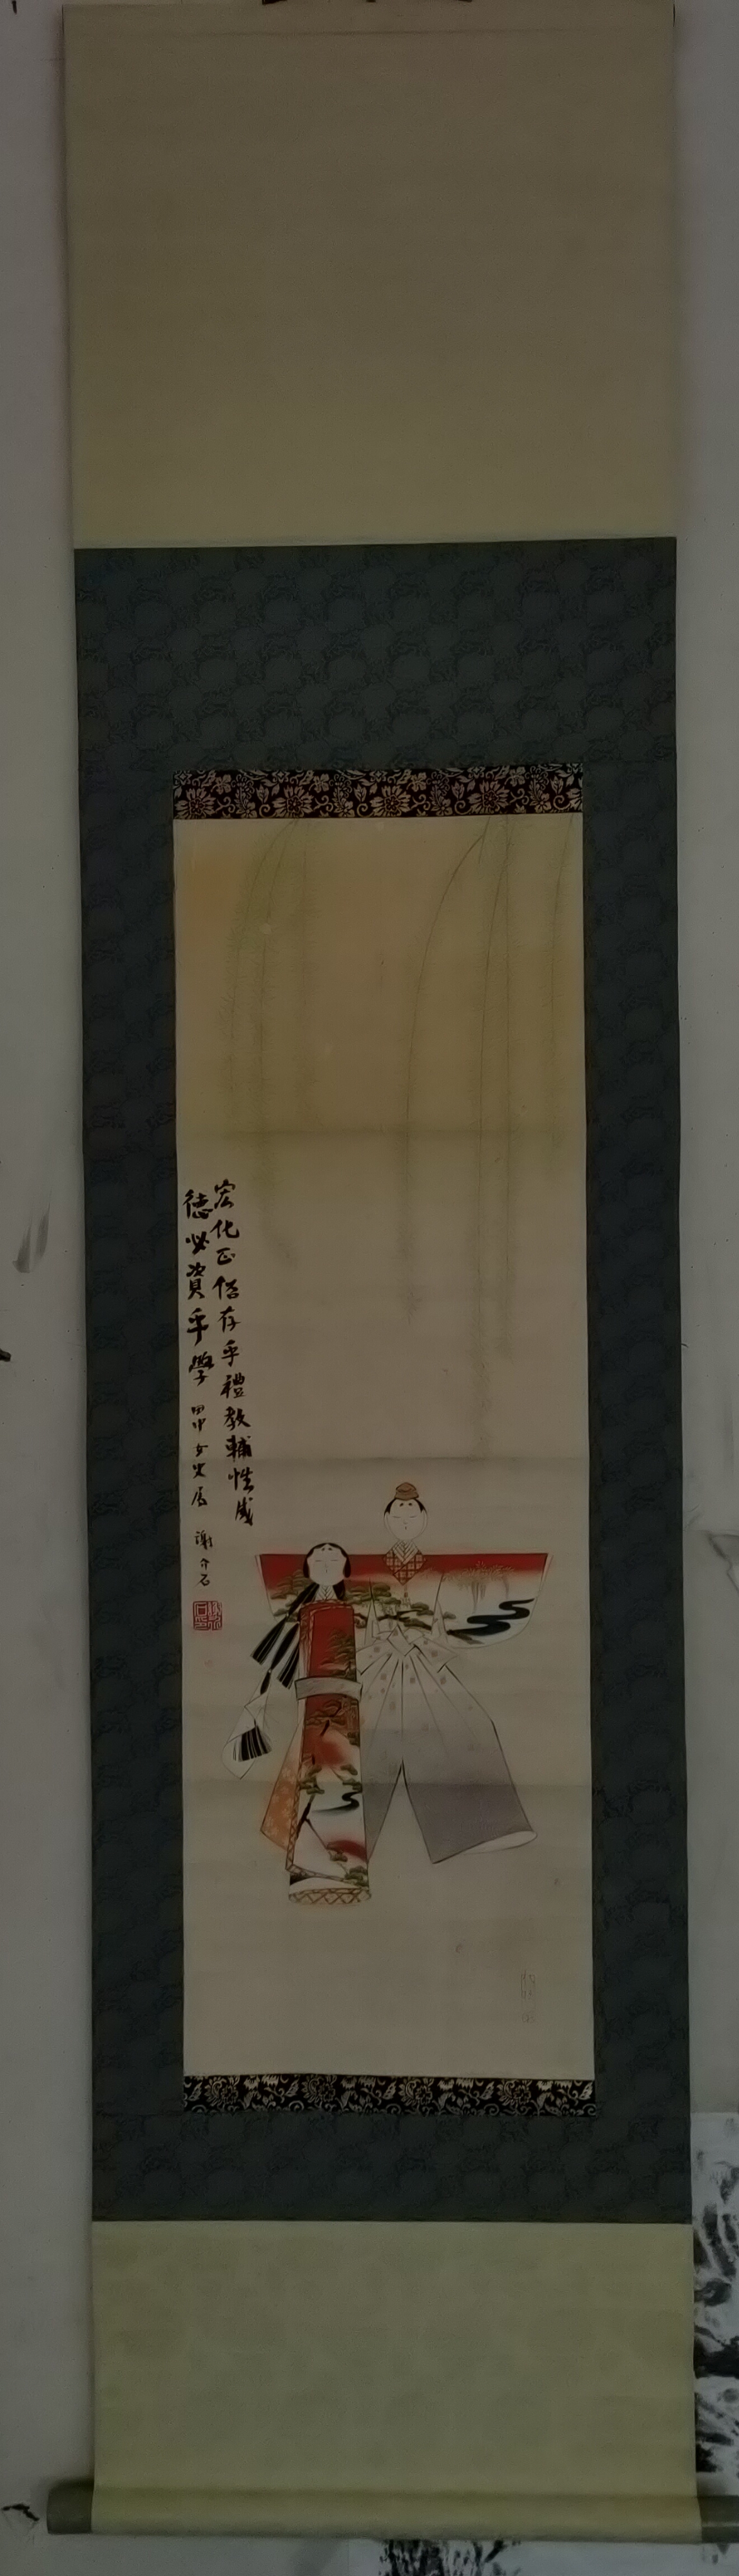 宏化正俗存乎禮教輔性成
德必資乎學 田中女史属 謝介石